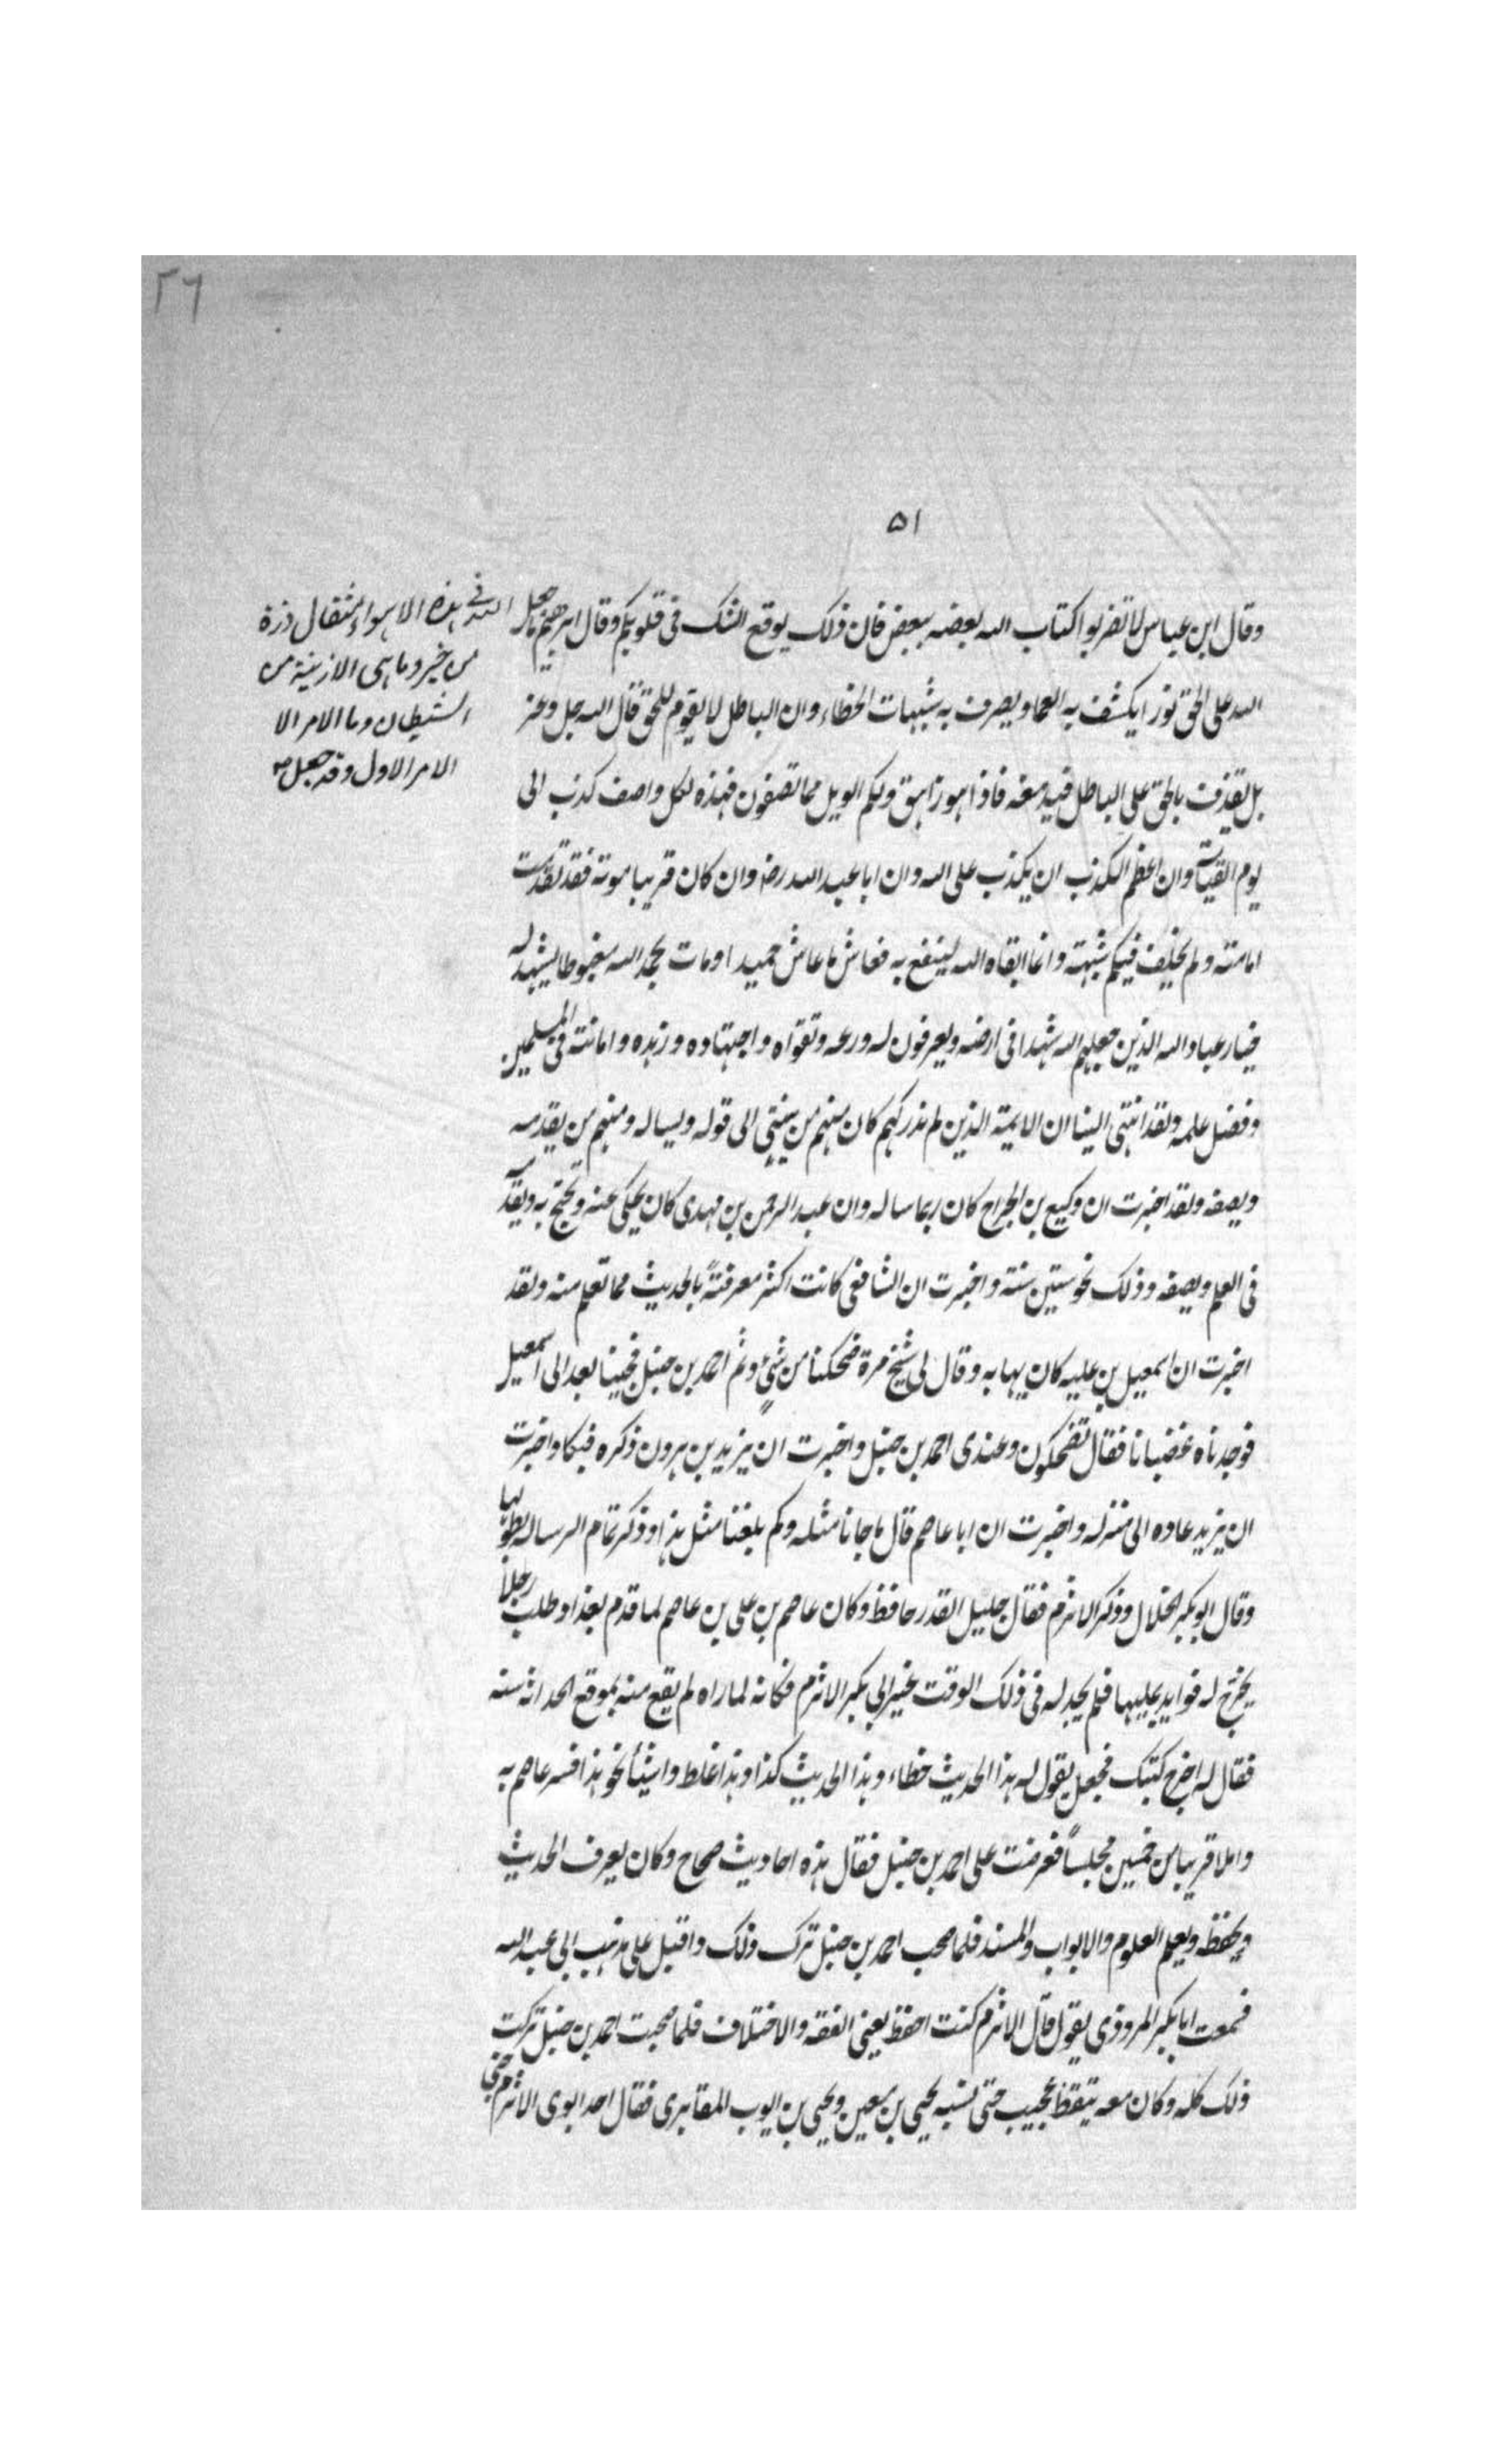 ٢٦
٥١
وقال ابن عباس لا تضربوا كتاب الله بعضه ببعض فان ذلك يوقع الشك فى قلوبكم وقال ابرهيم ما جعل
الله فى هذه الاهواء مثقال ذرة
من خير وما هى الا زينة من
الشيطان وما الامر الا
الامر الاول وقد جعل
الله على الحق نورا يكشف به العما ويصرف به شبهات الخطاء وان الباطل لا يقوم للحق قال الله جل وعز
بل نقذف بالحق على الباطل فيدمغه فاذا هو زاهق ولكم الويل مما تصفون فهذه لكل واصف كذب الى
يوم القيامة وان اعظم الكذب ان يكذب على الله وان ابا عبد الله رضه وان كان قريبا موته فقد تقدمت
امامته ولم يخلف فيكم شبهته وانما ابقاه الله لينفع به فعاش ما عاش حميدا ومات بحمد الله مغبوطا يشهد له
خيار عباد الله الذين جعلهم الله شهدا فى ارضه ويعرفون له ورعه وتقواه واجتهاده وزهده وامانته فى المسلمين
وفضل علمه ولقد انتهى الينا ان الايمة الذين لم ندركهم كان منهم من ينتهى الى قوله ويساله ومنهم من يقدمه
ويصفه ولقد اخبرت ان وكيع بن الجراح كان ربما ساله وان عبد الرحمن بن مهدى كان يحكى عنه ويحتج به ويقدمه
فى العلم ويصفه وذلك نحو ستين سنة واخبرت ان الشافعى كانت اكثر معرفتةً بالحديث مما تعلم منه ولقد
اخبرت ان اسمعيل بن عليه كان يهابه وقال لى شيخ مرة ضحكنا من شئٍ وثم احمد بن حنبل فجينا بعد الى اسمعيل
فوجدناه غضبانا فقال تضحكون وعندى احمد بن حنبل واخبرت ان يزيد بن هرون ذكره فبكا واخبرت
ان يزيد عاده الى منزله واخبرت ان ابا عاصم قال ما جانا مثله وكم بلغنا مثل هذا وذكر تمام الرساله بطولها
وقال ابو بكر الخلال وذكر الاثرم فقال جليل القدر حافظ وكان عاصم بن على بن عاصم لما قدم بغداد طلب رجلاً
يخرج له فوايد يمليها فلم يجد له فى ذلك الوقت غير ابى بكر الاثرم فكانه لما راه لم يقع منه بموقع لحداثه سنه
فقال له اخرج كتبك فجعل يقول له هذا الحديث خطاء وهذا الحديث كذا وهذا غلط واشيأ نحو هذا فسر عاصم به
واملا قريبا من خمسين مجلساً فعرضت على احمد بن حنبل فقال هذه احاديث صحاح وكان يعرف الحديث
ويحفظه ويعلم العلوم والابواب والمسند فلما صحب احمد بن حنبل ترك ذلك واقبل على مذهب ابى عبد الله
فسمعت ابا بكر المروذى يقول قال الاثرم كنت احفظ يعنى الفقه والاختلاف فلما صحبت احمد بن حنبل تركت
ذلك كله وكان معه تيقظ عجيب حتى نسبه يحيى بن معين ويحيى بن ايوب المقابرى فقال احد ابوى الاثرم جنى